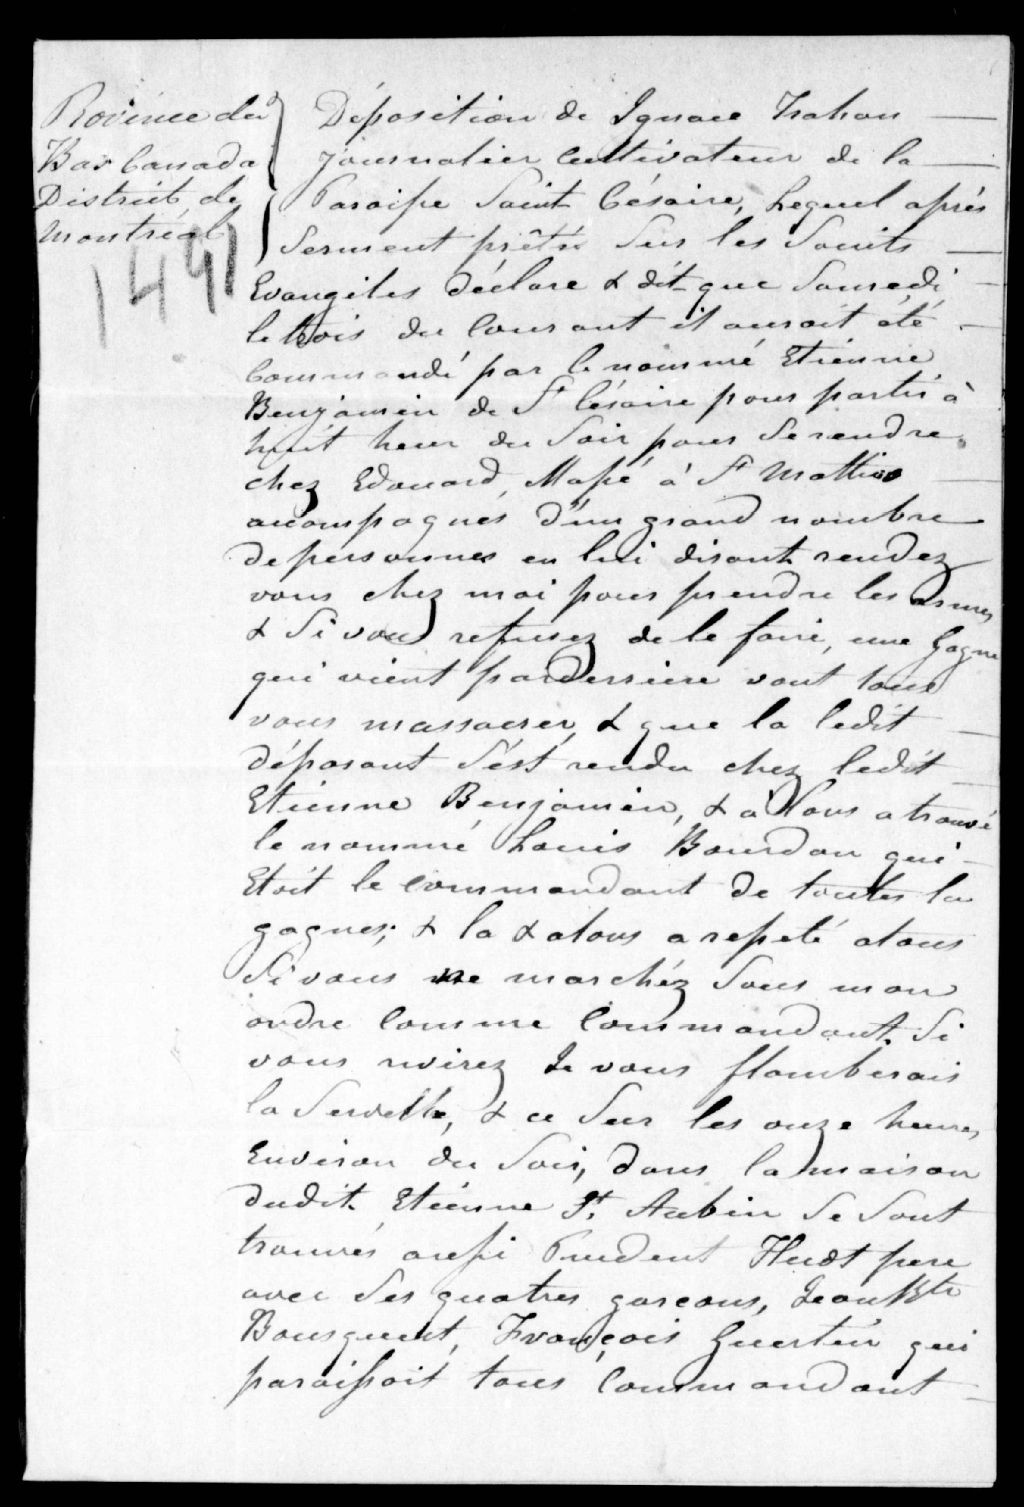 Province du
Bas Canada
District de
Montréal
1491
Déposition de Ignace Trahan
journalier Cultivateur de la
Paroisse Saint Césaire, Lequel après
Serment prêté Sur les Saints
Evangiles déclare & dit que Samedi
le trois du Courant il auroit été
Commandé par le nommé Etiénne
Benjamin de St Césaire pour partir à
huit heur du Soir pour Se rendre
chez Edouard Massé à St Mathias
accompagnés d'un grand nombre
de personnes en lui disant rendez
vous chez moi pour prendre les armes
& Si vous refusez de le faire, une Gagne
qui vient parderriere vont tous
vous massacrer, & que la ledit
déposant S'ést rendu chez ledit
Etiénne Benjamin, & alors a trouvé
le nommé Louis Bourdon qui
Etoit le Commandant de toutes la
gagnes; & la & alors a repeté atous
Si vous ne marchéz Sous mon
ordre Comme Commandant Si
vous revirez Je vous flamberais
la Servelle, & ce Sur les onze heures
Environ du Soir, dans la maison
dudit Etiénne St. Aubin Se Sont
trouvés aussi Prudent Huot pere
avec Ses quatres garcons, Jean Bte
Bousquet, François Guertin qui
paraissoit tous Commandant